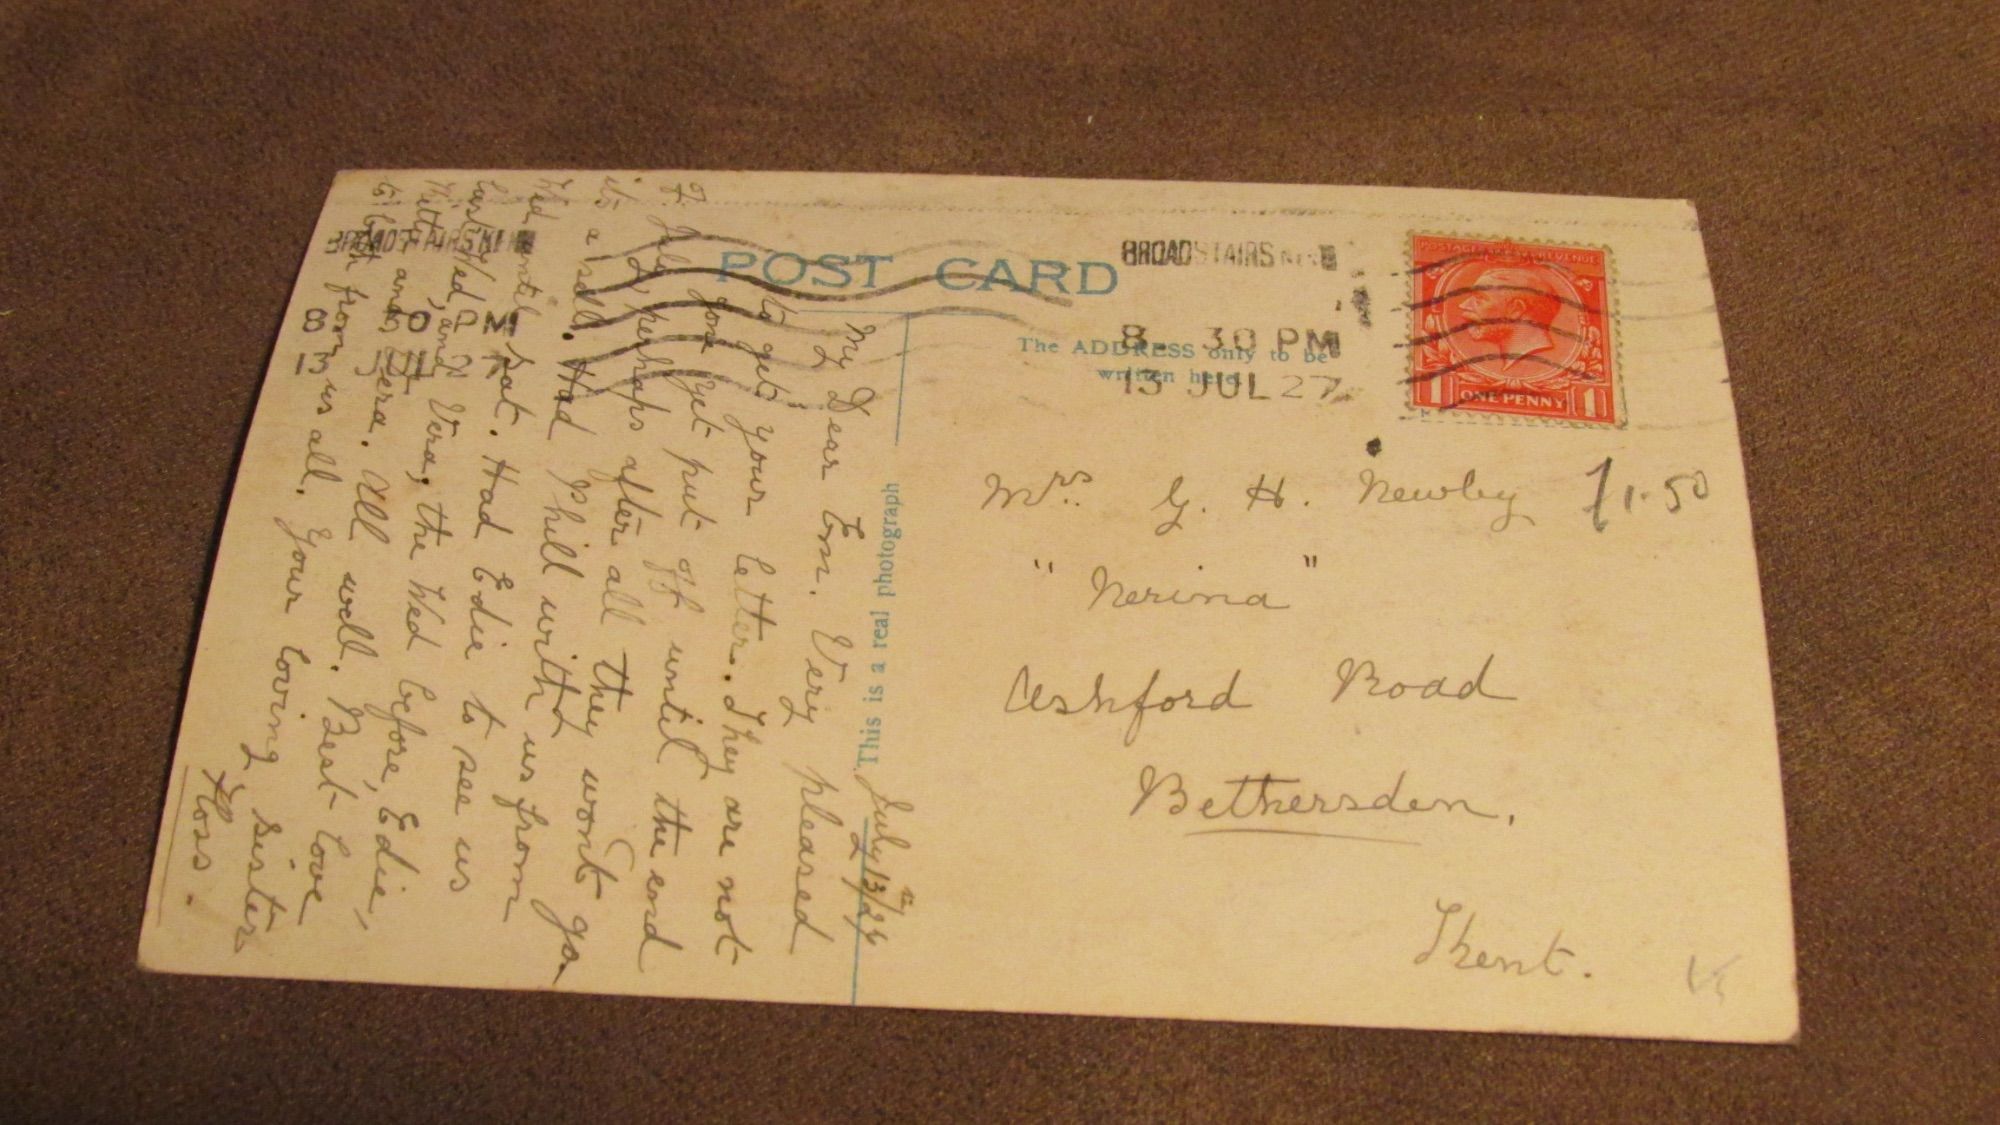 POST CARD
BROADSTAIRS KENT
8. 30 PM
13 JUL 27
BROADSTAIRS KENT
8. 30 PM
13 JUL 27
POSTAGE REVENUE
1 ONE PENNY 1
The ADDRESS only to be
written here.
This is a real photograph
Mrs. G. H. Newby
"Nerina"
Ashford Road
Bethersden,
Kent.
£1.50
July 13th/27
My Dear Em. Very pleased
to get your letter. They are not
gone yet put off until the end
of July, perhaps after all they wont go.
its a sell. Had Phill with us from
Wed until Sat. Had Edie to see us
last Wed, and Vera, the Wed before, Edie,
and Vera. All well. Best love
to both from us all. Your loving Sister
Floss.